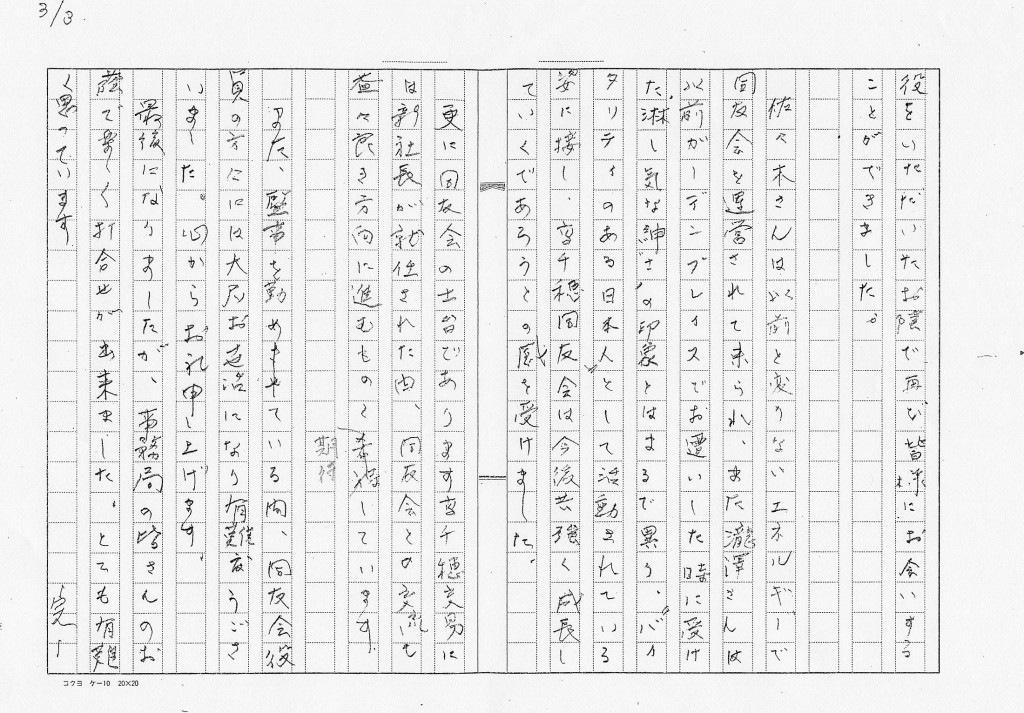 3/3
役をいただいたお陰で再び皆様にお会いする
ことができました。
佐々木さんは以前と変りないエネルギーで
同友会を運営されて来られ、また瀧澤さんは
以前ガーデンプレイスでお遭いした時に受け
た淋し気な紳さ〃の印象とはまるで異り、バイ
タリティのある日本人として活動されている
姿に接し、高千穂同友会は今後共強く成長し
ていくであろうとの感を受けました。
更に同友会の土台であります高千穂交易に
は新社長が就任された由、同友会との交流も
益々良き方向に進むものと希待しています。
期待
また、監事を勤めさせている間、同友会役
員の方には大変お世話になり有難度うござ
いました。心からお礼申し上げます。
最後になりましたが、事務局の皆さんのお
蔭で楽しく打合せが出来ました。とても有難
く思っています
完ー
コクヨ ケー10 20×20